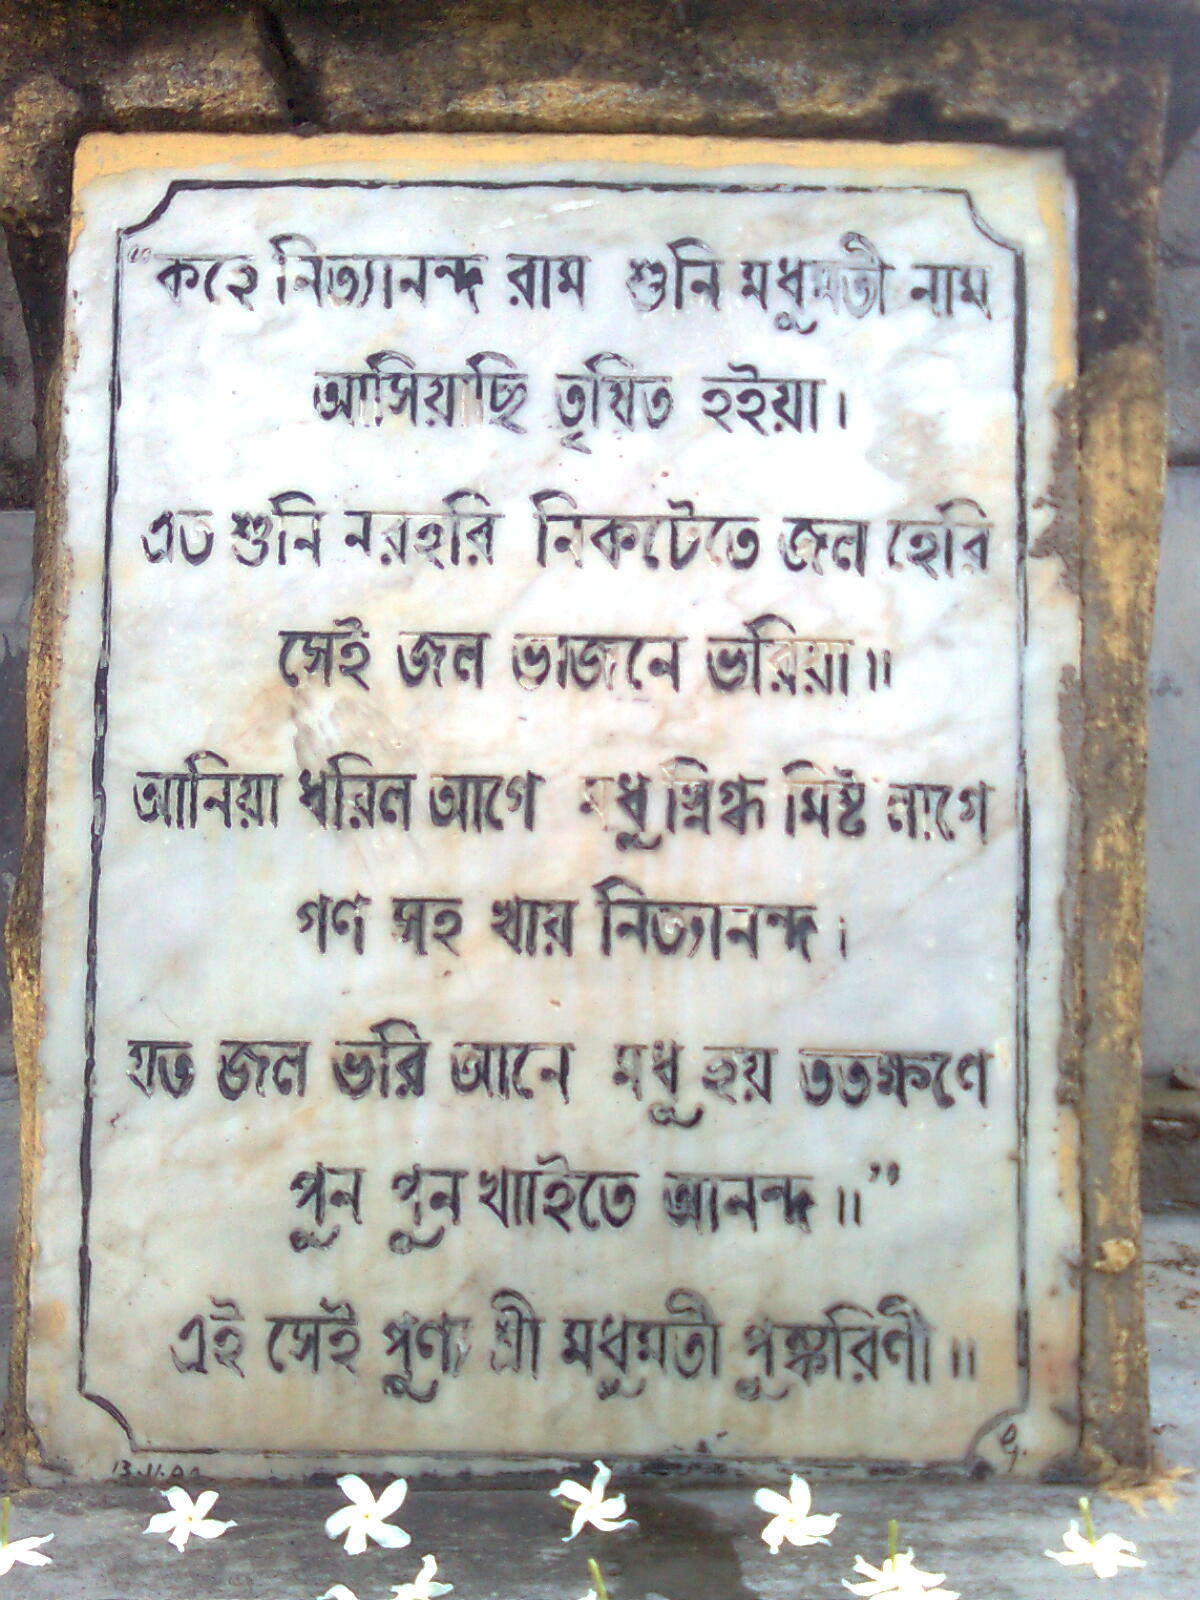 “কহে নিত্যানন্দ রাম শুনি মধুমতী নাম
আসিয়াছি তৃষিত হইয়া।
এত শুনি নরহরি নিকটেতে জল হেরি
সেই জল ভাজনে ভরিয়া॥
আনিয়া ধরিল আগে মধু স্নিগ্ধ মিষ্ট লাগে
গণ সহ খায় নিত্যানন্দ।
যত জল ভরি আনে মধু হয় ততক্ষণে
পুন পুন খাইতে আনন্দ॥”
এই সেই পুণ্য শ্রী মধুমতী পুষ্করিণী॥